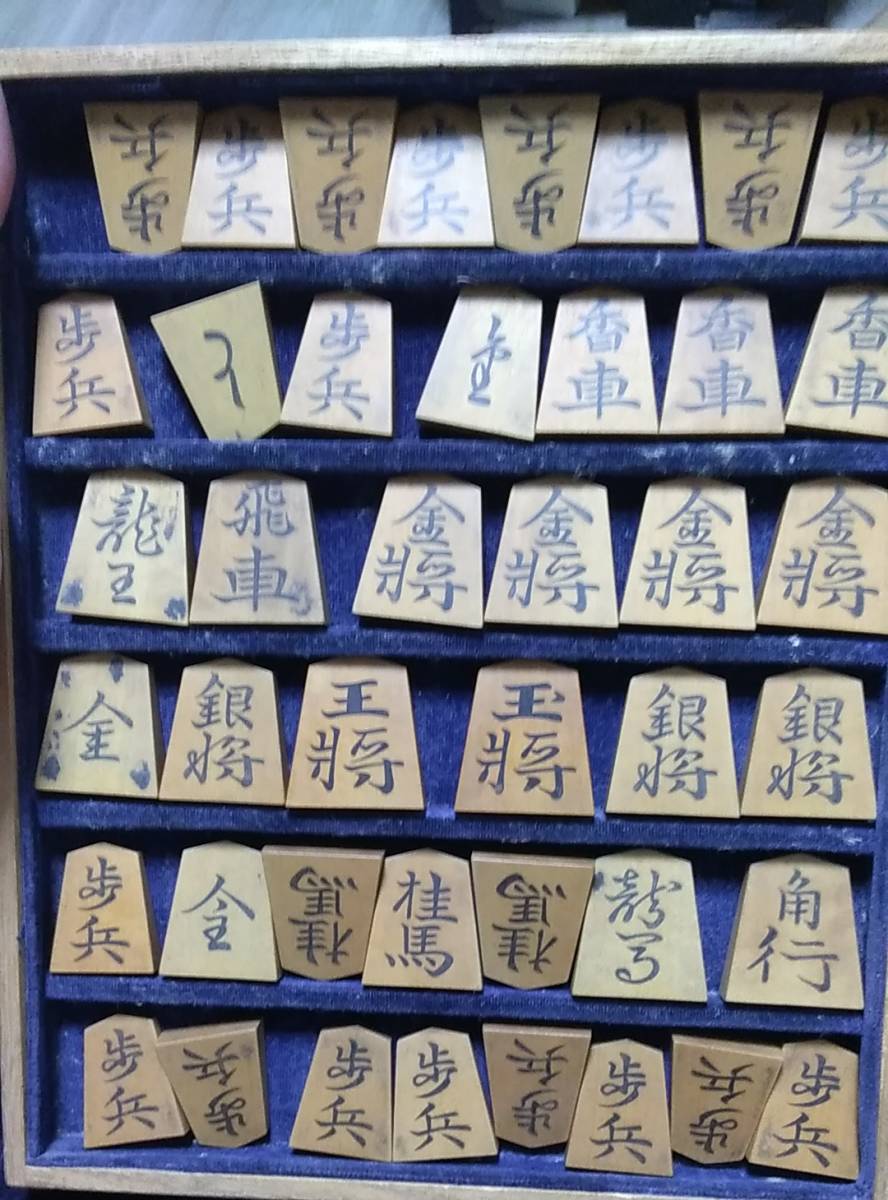 歩兵 歩兵 歩兵 歩兵 歩兵 歩兵 歩兵 歩兵
歩兵 と 歩兵 香車 香車 香車
龍王 飛車 金將 金將 金將 金將
金 銀将 王將 玉將 銀将 銀将
歩兵 全 桂馬 桂馬 桂馬 龍馬 角行
歩兵 歩兵 歩兵 歩兵 歩兵 歩兵 歩兵 歩兵